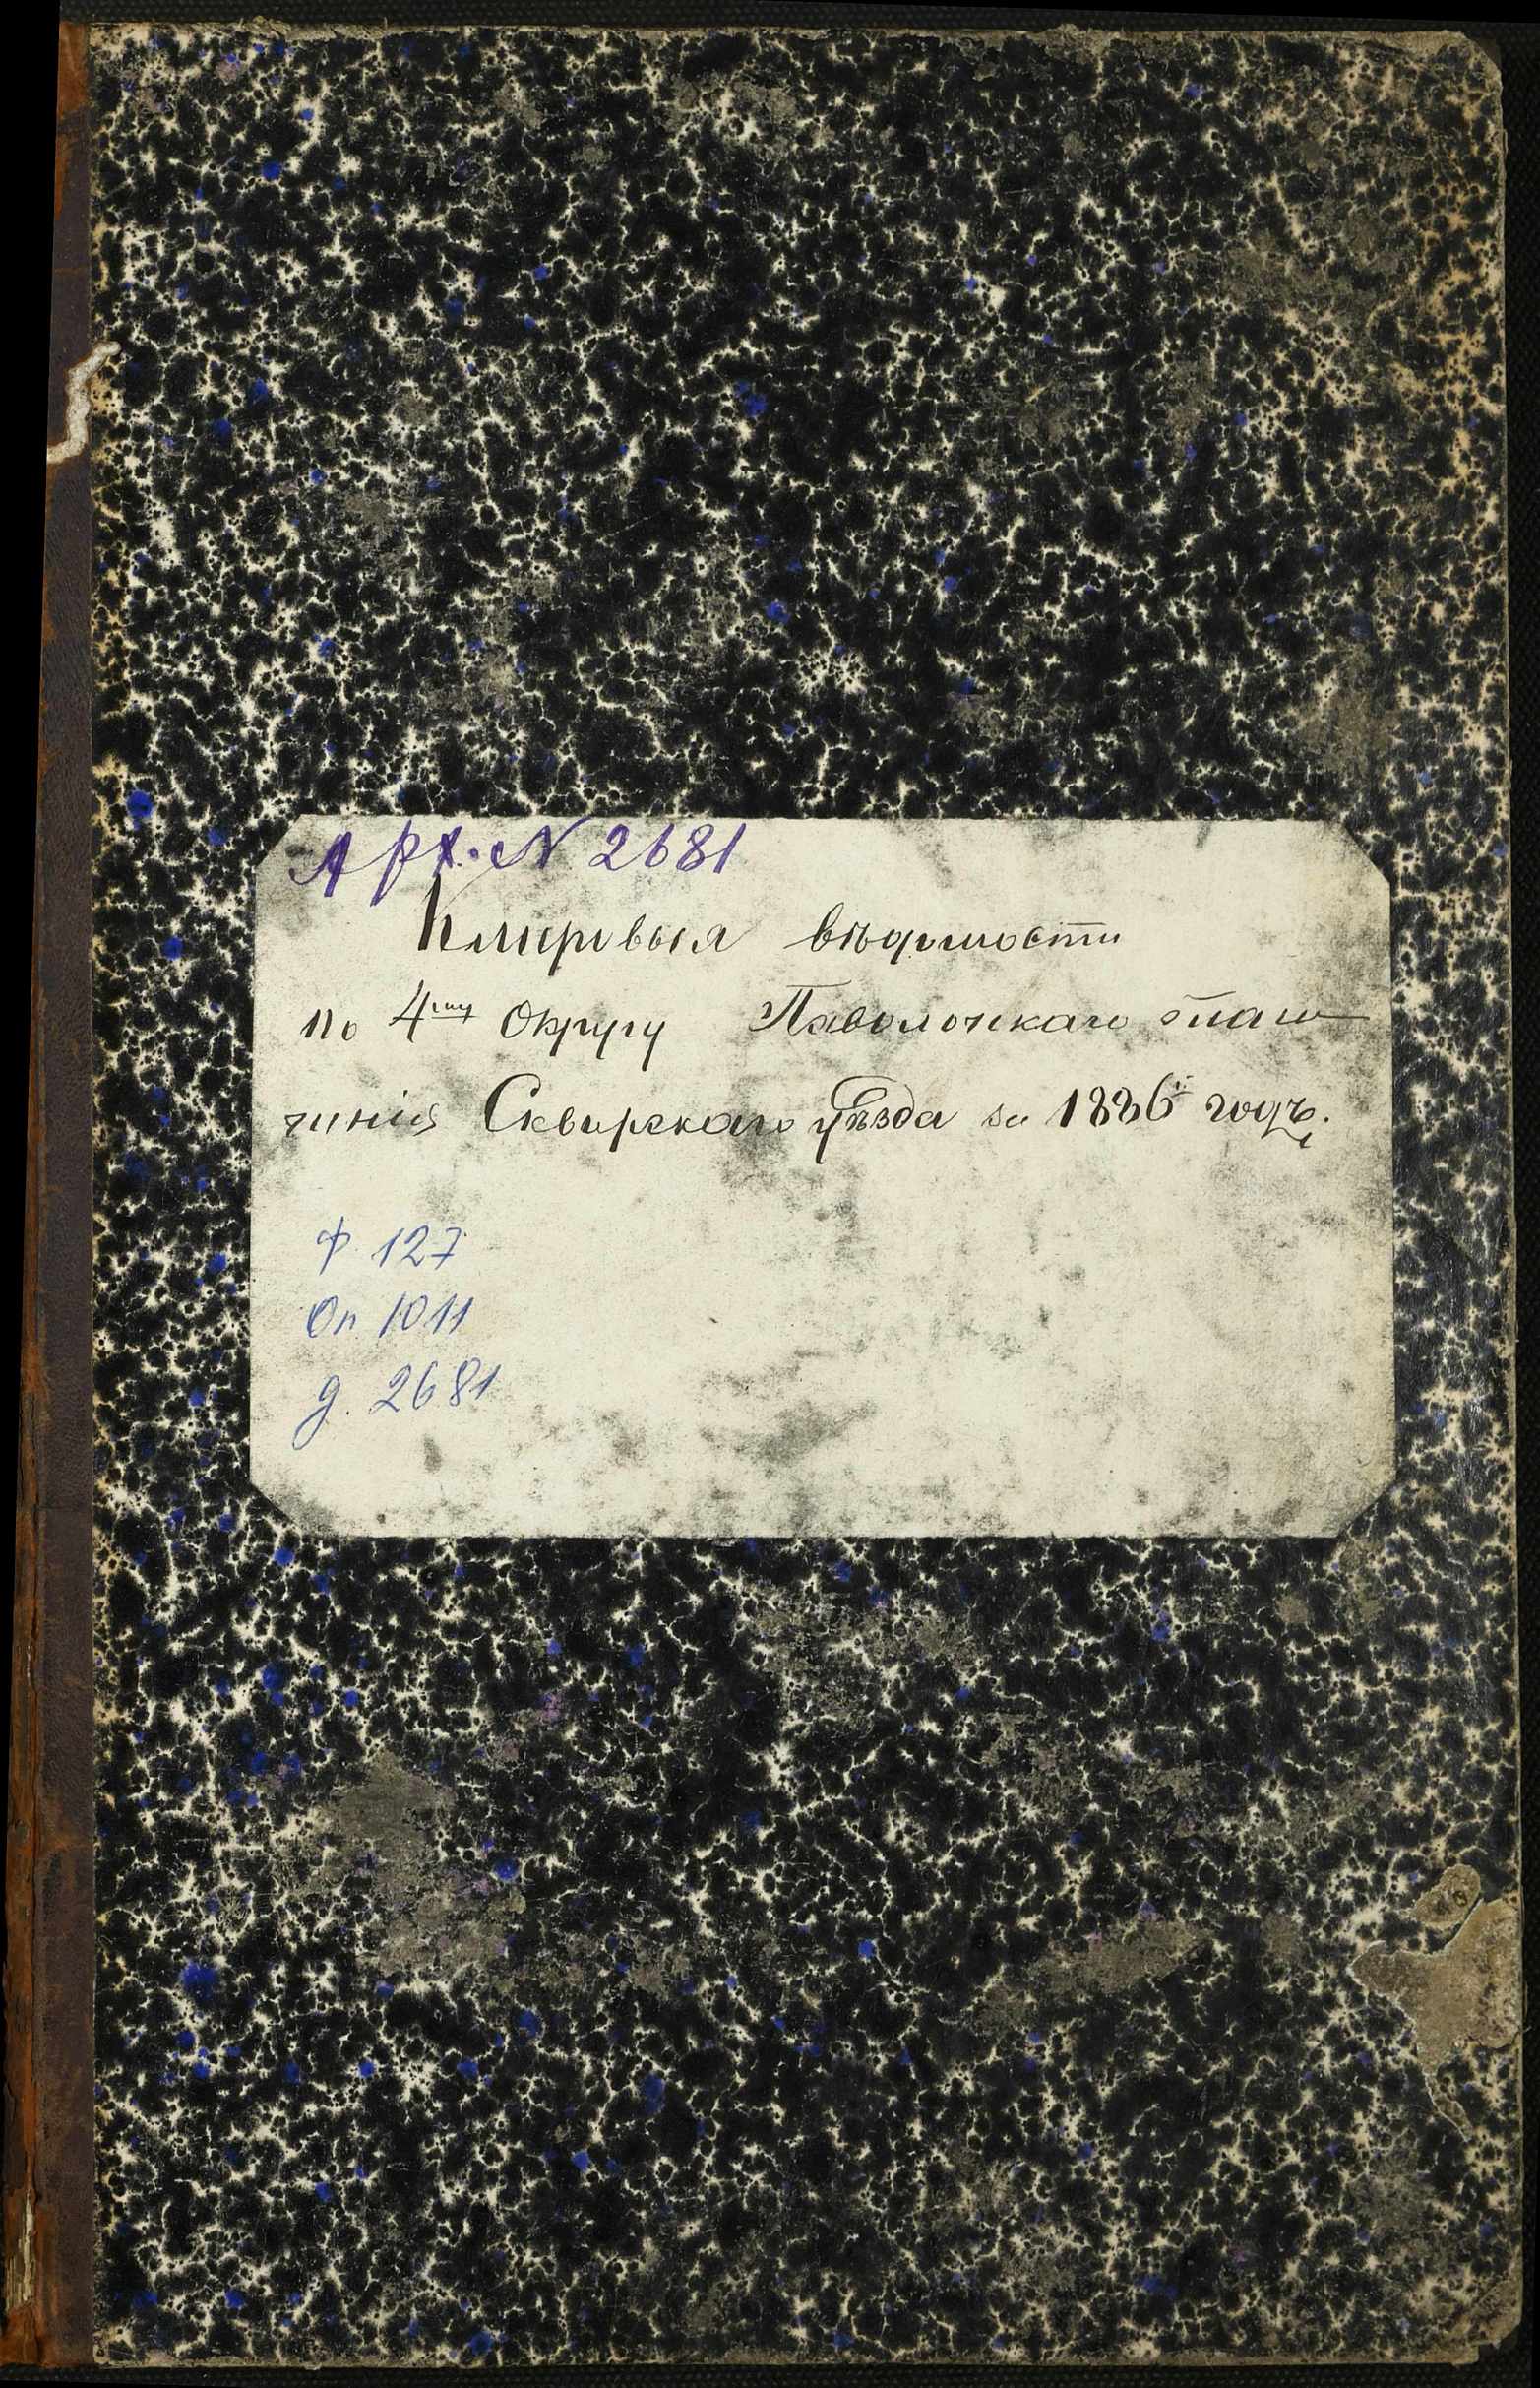 Арх. № 2681
Клировыя вѣдомости
по 4му округу Паволочкаго благо
чинія Сквирскаго уѣзда за 1886й годъ.
Ф. 127
Оп 1011
д. 2681